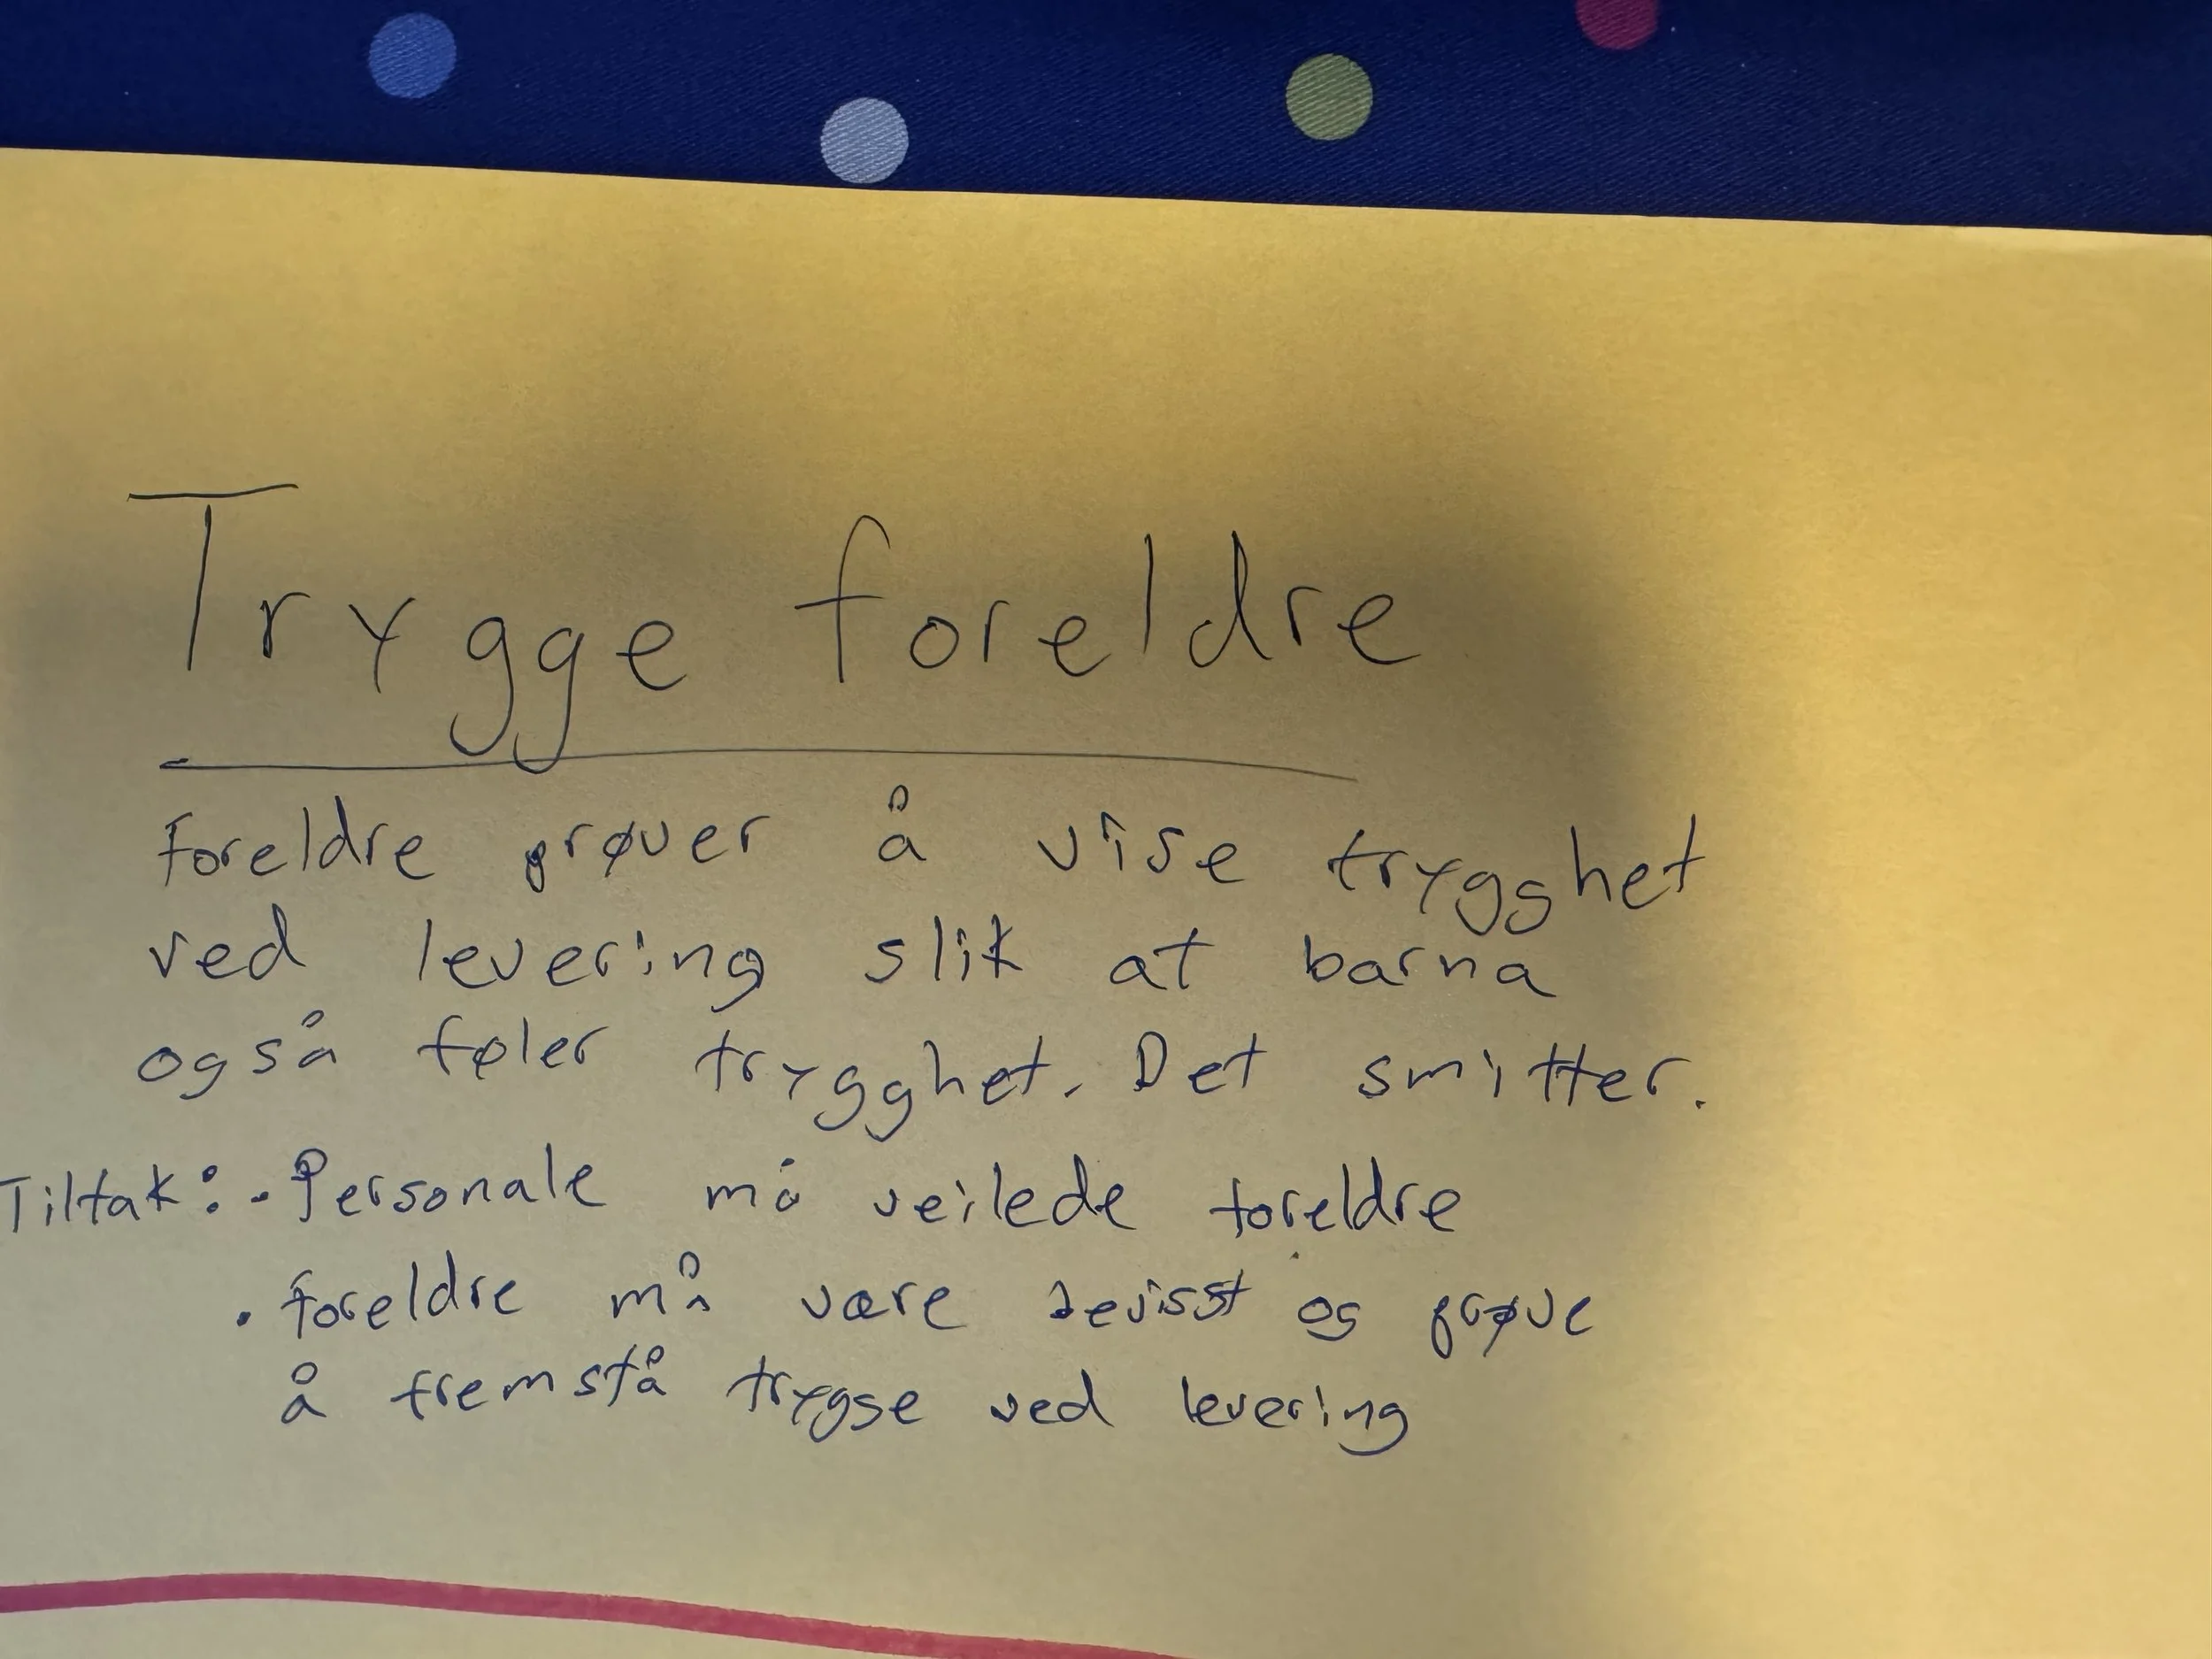 Trygge foreldre
Foreldre prøver å vise trygghet
ved levering slik at barna
også føler trygghet. Det smitter.
Tiltak: · Personale må veilede foreldre
· foreldre må være bevisst og prøve
å fremstå trygge ved levering